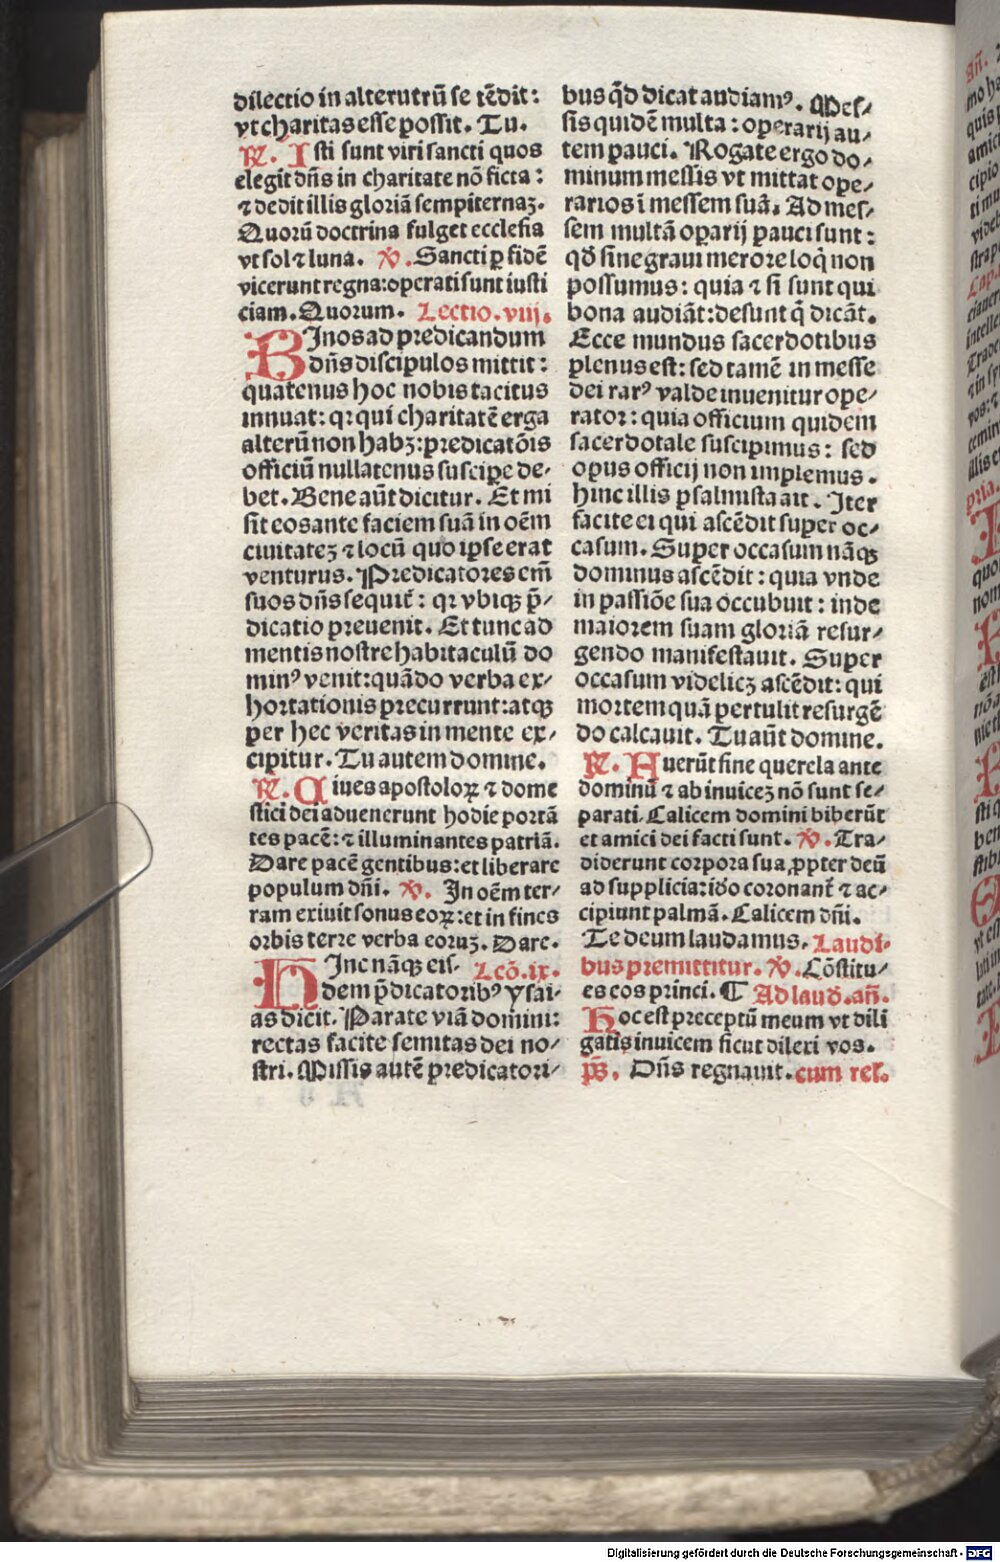 dilectio in alterutrū se tēdit:
vt charitas esse possit. Tu.
℟. Isti sunt viri sancti quos
elegit dn̄s in charitate nō ficta:
⁊ dedit illis gloriā sempiternaꝫ.
Quorū doctrina fulget ecclesia
vt sol ⁊ luna. ℣. Sancti ꝑ fidē
vicerunt regna: operati sunt iusti
ciam. Quorum. Lectio. viij.
BInos ad predicandum
dn̄s discipulos mittit:
quatenus hoc nobis tacitus
innuat: qꝛ qui charitatē erga
alterū non habꝫ: predicatōis
officiū nullatenus suscipe de⸗
bet. Bene aūt dicitur. Et mi
sit eos ante faciem suā in oēm
ciuitateꝫ ⁊ locū quo ipse erat
venturus. Predicatores em̄
suos dn̄s sequit̄: qꝛ vbiqꝫ p̄⸗
dicatio preuenit. Et tunc ad
mentis nostre habitaculū do
minꝰ venit: quādo verba ex⸗
hortationis precurrunt: atqꝫ
per hec veritas in mente ex⸗
cipitur. Tu autem domine.
℟. Ciues apostoloꝝ ⁊ dome
stici dei aduenerunt hodie portā
tes pacē: ⁊ illuminantes patriā.
Dare pacē gentibus: et liberare
populum dn̄i. ℣. In oēm ter⸗
ram exiuit sonus eoꝝ: et in fines
orbis terre verba eoruꝫ. Dare.
HInc nāqꝫ eis⸗ Lcō. ix.
dem p̄dicatoribꝰ ysai⸗
as dicit. Parate viā domini:
rectas facite semitas dei no⸗
stri. Missis autē predicatori⸗
bus qd̄ dicat audiamꝰ. Mes⸗
sis quidē multa: operarij au⸗
tem pauci. Rogate ergo do⸗
minum messis vt mittat ope⸗
rarios ī messem suā. Ad mes⸗
sem multā oꝑarij pauci sunt:
qd̄ sine graui merore loq̇ non
possumus: quia ⁊ si sunt qui
bona audiāt: desunt q̇ dicāt.
Ecce mundus sacerdotibus
plenus est: sed tamē in messe
dei rarꝰ valde inuenitur ope⸗
rator: quia officium quidem
sacerdotale suscipimus: sed
opus officij non implemus.
hinc illis psalmista ait. Iter
facite ei qui ascēdit super oc⸗
casum. Super occasum nāqꝫ
dominus ascēdit: quia vnde
in passiōe sua occubuit: inde
maiorem suam gloriā resur⸗
gendo manifestauit. Super
occasum videlicꝫ ascēdit: qui
mortem quā pertulit resurgē
do calcauit. Tu aūt domine.
℟. Fuerūt sine querela ante
dominū ⁊ ab inuiceꝫ nō sunt se⸗
parati. Calicem domini biberūt
et amici dei facti sunt. ℣. Tra⸗
diderunt corpora sua ꝓpter deū
ad supplicia: id̄o coronant̄ ⁊ ac⸗
cipiunt palmā. Calicem dn̄i.
Te deum laudamus. Laudi⸗
bus premittitur. ℣. Cōstitu⸗
es eos princi. ¶ Ad laud. an̄.
Hoc est preceptū meum vt dili
gatis inuicem sicut dilexi vos.
ps̄. Dn̄s regnauit. cum rel.
Digitalisierung gefördert durch die Deutsche Forschungsgemeinschaft - DFG